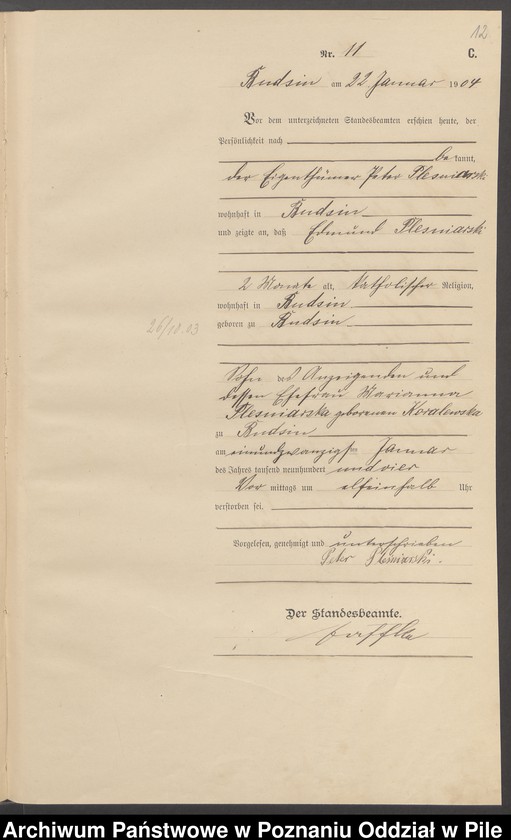 12
Nr. 11 C.
Budsin am 22 Januar 1904
Vor dem unterzeichneten Standesbeamten erschien heute, der
Persönlichkeit nach
be kannt,
der Eigenthümer Peter Plesniarski
wohnhaft in Budsin
und zeigte an, daß Edmund Plesniarski
2 Monate alt, katholischer Religion,
wohnhaft in Budsin
geboren zu Budsin
26/10.03
Sohn des Anzeigenden und
dessen Ehefrau Marianna
Plesniarska geborenen Koralewska
zu Budsin
am einundzwanzigsten Januar
des Jahres tausend neunhundert und vier
Vor mittags um elfeinhalb Uhr
verstorben sei.
Vorgelesen, genehmigt und unterschrieben
Peter Plesniarski.
Der Standesbeamte.
Archiwum Państwowe w Poznaniu Oddział w Pile